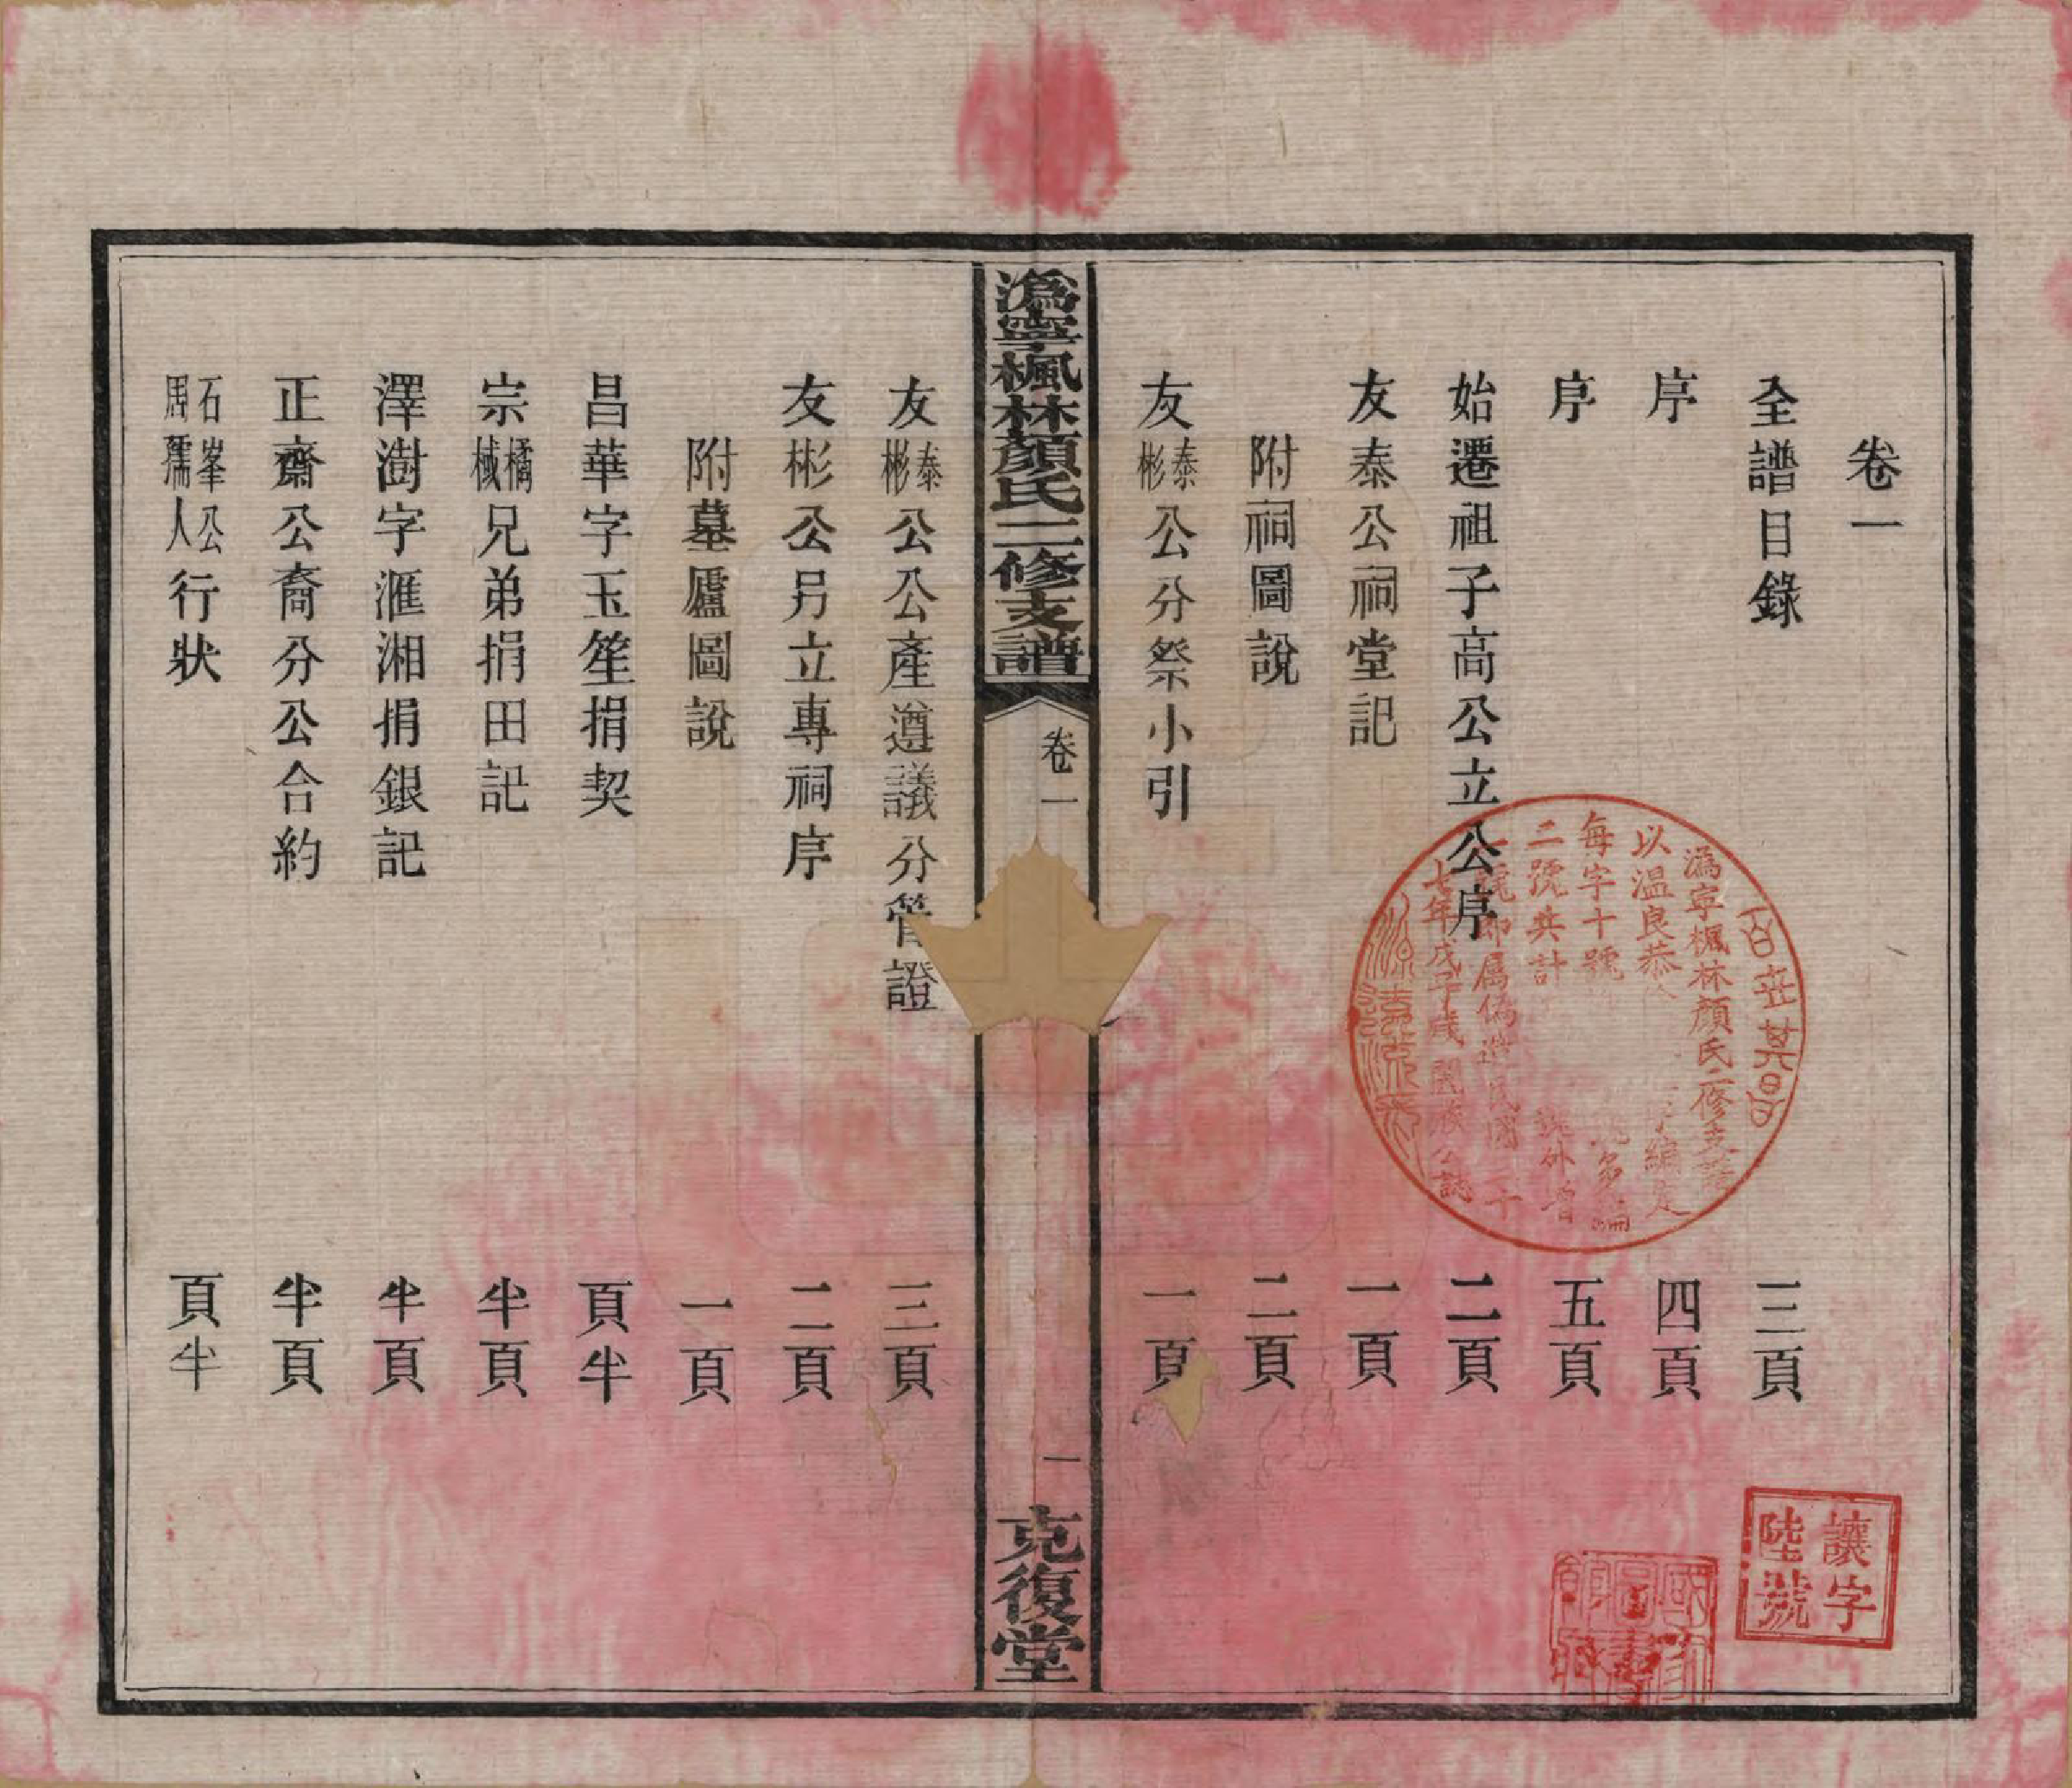 卷一
全譜目錄 三頁
序 四頁
序 五頁
始遷祖子高公立公序 二頁
友泰公祠堂記 一頁
附祠圖說 二頁
友泰彬公分祭小引 一頁
溈寧楓林顏氏二修支譜 卷一 一 克復堂
友泰彬公公產遵議分管證 三頁
友彬公另立專祠序 二頁
附墓廬圖說 一頁
昌華字玉笙捐契 頁半
宗橘棫兄弟捐田記 半頁
澤澍字滙湘捐銀記 半頁
正齋公裔分公合約 半頁
石峯公周孺人行狀 頁半
溈寧楓林顏氏二修支譜
以温良恭 字編定
每字十號
二號共計 號外增
號卽属偽造民國三十
七年戊子歲闔族公誌
源遠流長
讓字
陸號